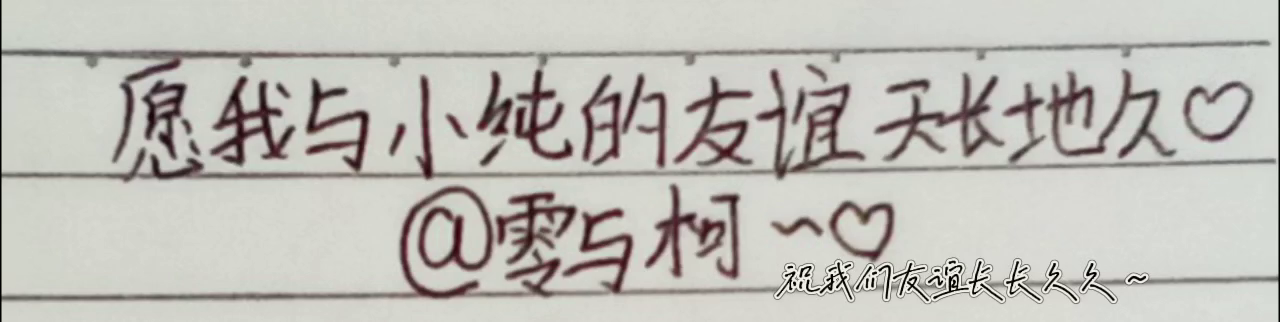 愿我与小纯的友谊天长地久♡
@零与柯~♡
祝我们友谊长长久久~